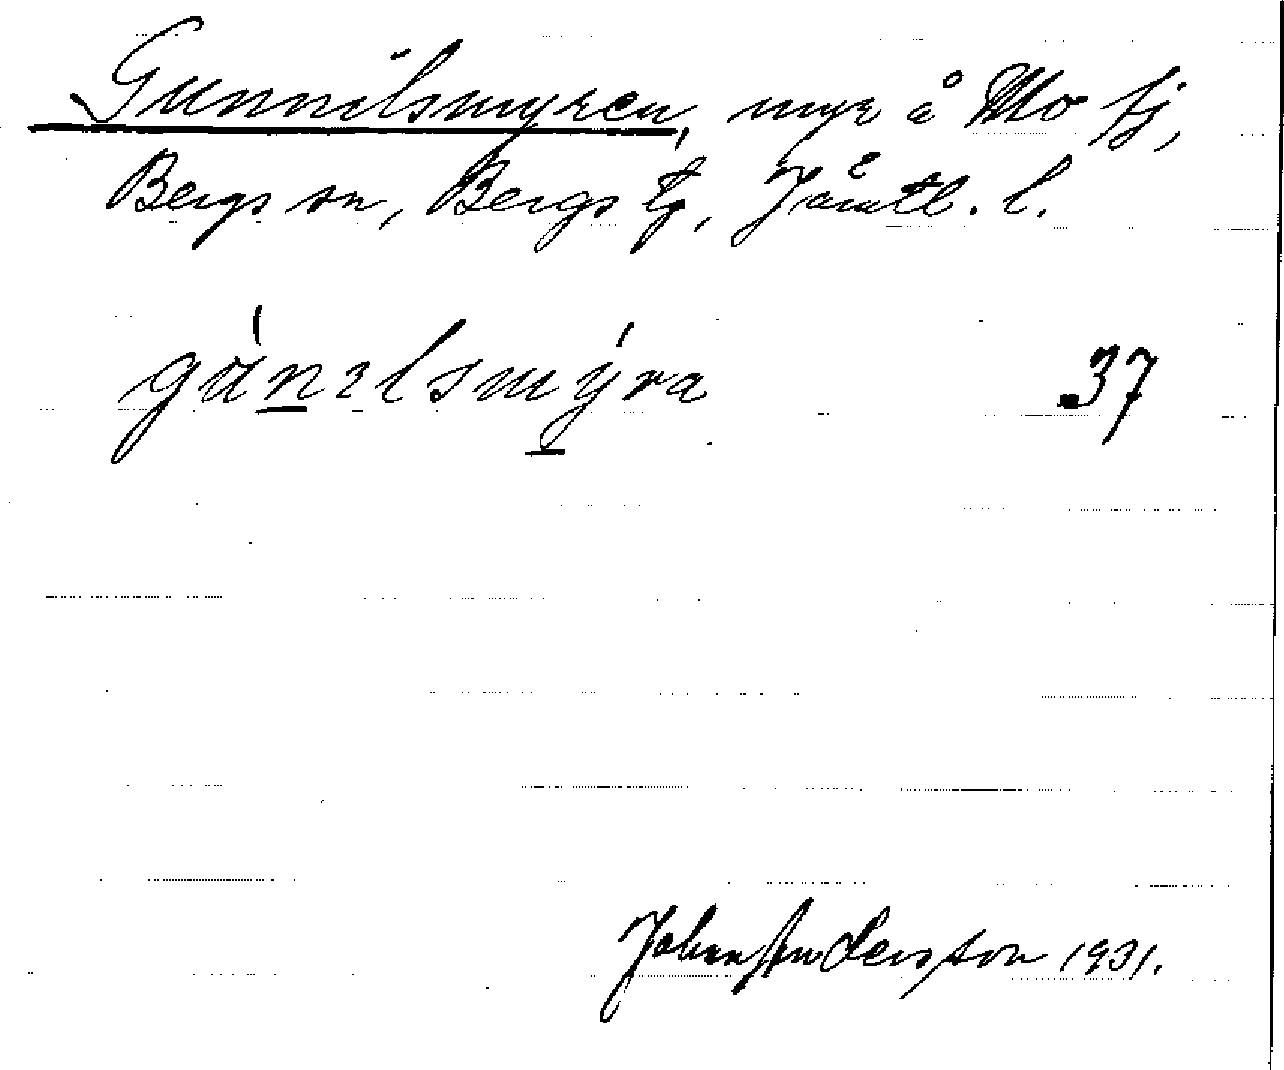 Gunnilsmyren, myr å Mo fj,
Bergs sn, Bergs tg, Jämtl. l.
gùnɿlsmýra 37
Johan Andersson 1931.